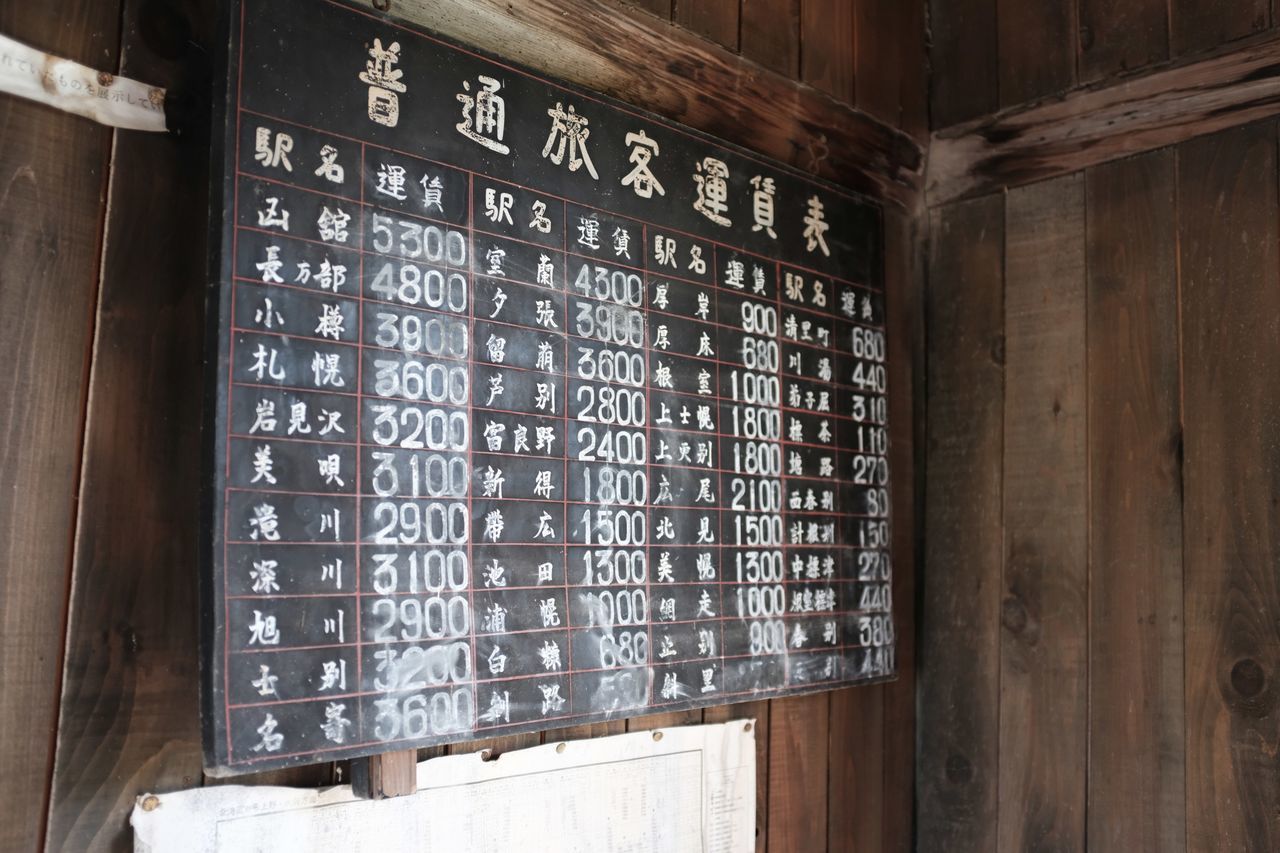 れていたものを展示して
普通旅客運賃表
駅名 運賃 駅名 運賃 駅名 運賃 駅名 運賃
函館 5300 室蘭 4300 厚岸 900 清里町 680
長万部 4800 夕張 3900 厚床 680 川湯 440
小樽 3900 留萌 3600 根室 1000 310
札幌 3600 芦別 2800 上士幌 1800 標茶 110
岩見沢 3200 富良野 2400 上更別 1800 塘路 270
美唄 3100 新得 1800 広尾 2100 西春别 80
滝川 2900 帯広 1500 北見 1500 計根別 150
深川 3100 池田 1300 美幌 1300 中標津 270
旭川 2900 浦幌 1000 網走 1000 根室標津 440
士别 3200 白糠 680 止别 900 春别 380
名寄 3600 釧路 斜里 别 440